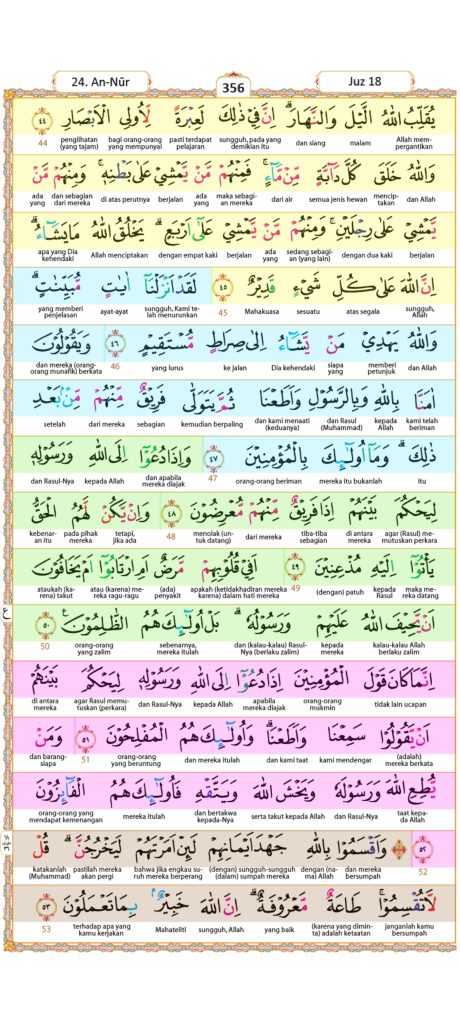 24. An-Nūr
356
Juz 18
يُقَلِّبُ اللّٰهُ الَّيْلَ وَالنَّهَارَۗ اِنَّ فِيْ ذٰلِكَ لَعِبْرَةً لِّاُولِى الْاَبْصَارِ ٤٤
Allah mem-pergantikan malam dan siang sungguh, pada yang demikian itu pasti terdapat pelajaran bagi orang-orang yang mempunyai penglihatan (yang tajam) 44
وَاللّٰهُ خَلَقَ كُلَّ دَاۤبَّةٍ مِّنْ مَّاۤءٍۚ فَمِنْهُمْ مَّنْ يَّمْشِيْ عَلٰى بَطْنِهٖۚ وَمِنْهُمْ مَّنْ
dan Allah mencip-takan semua jenis hewan dari air maka sebagi-an mereka ada yang berjalan di atas perutnya dan sebagian dari mereka ada yang
يَّمْشِيْ عَلٰى رِجْلَيْنِۚ وَمِنْهُمْ مَّنْ يَّمْشِيْ عَلٰٓى اَرْبَعٍۗ يَخْلُقُ اللّٰهُ مَا يَشَاۤءُۗ
berjalan dengan dua kaki sedang sebagi-an (yang lain) ada yang berjalan dengan empat kaki Allah menciptakan apa yang Dia kehendaki
اِنَّ اللّٰهَ عَلٰى كُلِّ شَيْءٍ قَدِيْرٌ ٤٥ لَقَدْ اَنْزَلْنَآ اٰيٰتٍ مُّبَيِّنٰتٍۗ
sungguh, Allah atas segala sesuatu Mahakuasa 45 sungguh, Kami te-lah menurunkan ayat-ayat yang memberi penjelasan
وَاللّٰهُ يَهْدِيْ مَنْ يَّشَاۤءُ اِلٰى صِرَاطٍ مُّسْتَقِيْمٍ ٤٦ وَيَقُوْلُوْنَ
dan Allah memberi petunjuk siapa yang Dia kehendaki ke jalan yang lurus 46 dan mereka (orang-orang munafik) berkata
اٰمَنَّا بِاللّٰهِ وَبِالرَّسُوْلِ وَاَطَعْنَا ثُمَّ يَتَوَلّٰى فَرِيْقٌ مِّنْهُمْ مِّنْۢ بَعْدِ
kami telah beriman kepada Allah dan Rasul (Muhammad) dan kami menaati (keduanya) kemudian berpaling sebagian dari mereka setelah
ذٰلِكَۗ وَمَآ اُولٰۤىِٕكَ بِالْمُؤْمِنِيْنَ ٤٧ وَاِذَا دُعُوْٓا اِلَى اللّٰهِ وَرَسُوْلِهٖ
itu mereka itu bukanlah orang-orang beriman 47 dan apabila mereka diajak kepada Allah dan Rasul-Nya
لِيَحْكُمَ بَيْنَهُمْ اِذَا فَرِيْقٌ مِّنْهُمْ مُّعْرِضُوْنَ ٤٨ وَاِنْ يَّكُنْ لَّهُمُ الْحَقُّ
agar (Rasul) me-mutuskan perkara di antara mereka tiba-tiba sebagian dari mereka menolak (un-tuk datang) 48 tetapi, jika ada pada pihak mereka kebenar-an itu
يَأْتُوْٓا اِلَيْهِ مُذْعِنِيْنَ ٤٩ اَفِيْ قُلُوْبِهِمْ مَّرَضٌ اَمِ ارْتَابُوْٓا اَمْ يَخَافُوْنَ
maka me-reka datang kepada Rasul (dengan) patuh 49 apakah (ketidakhadiran mereka karena) dalam hati mereka (ada) penyakit atau (karena) me-reka ragu-ragu ataukah (ka-rena) takut
اَنْ يَّحِيْفَ اللّٰهُ عَلَيْهِمْ وَرَسُوْلُهٗۗ بَلْ اُولٰۤىِٕكَ هُمُ الظّٰلِمُوْنَ ٥٠
kalau-kalau Allah berlaku zalim kepada mereka dan (kalau-kalau) Rasul-Nya (berlaku zalim) sebenarnya, mereka itulah orang-orang yang zalim 50
ع
اِنَّمَا كَانَ قَوْلَ الْمُؤْمِنِيْنَ اِذَا دُعُوْٓا اِلَى اللّٰهِ وَرَسُوْلِهٖ لِيَحْكُمَ بَيْنَهُمْ
tidak lain ucapan orang-orang mukmin apabila mereka diajak kepada Allah dan Rasul-Nya agar Rasul memu-tuskan (perkara) di antara mereka
اَنْ يَّقُوْلُوْا سَمِعْنَا وَاَطَعْنَاۗ وَاُولٰۤىِٕكَ هُمُ الْمُفْلِحُوْنَ ٥١ وَمَنْ
(adalah) mereka berkata kami mendengar dan kami taat dan mereka itulah orang-orang yang beruntung 51 dan barang-siapa
يُّطِعِ اللّٰهَ وَرَسُوْلَهٗ وَيَخْشَ اللّٰهَ وَيَتَّقْهِ فَاُولٰۤىِٕكَ هُمُ الْفَاۤىِٕزُوْنَ
taat kepa-da Allah dan Rasul-Nya serta takut kepada Allah dan bertakwa kepada-Nya mereka itulah orang-orang yang mendapat kemenangan
٥٢ وَاَقْسَمُوْا بِاللّٰهِ جَهْدَ اَيْمَانِهِمْ لَىِٕنْ اَمَرْتَهُمْ لَيَخْرُجُنَّۗ قُلْ
52 dan mereka bersumpah dengan (na-ma) Allah (dengan) sungguh-sungguh (dalam) sumpah mereka bahwa jika engkau su-ruh mereka berperang pastilah mereka akan pergi katakanlah (Muhammad)
لَّا تُقْسِمُوْاۚ طَاعَةٌ مَّعْرُوْفَةٌۗ اِنَّ اللّٰهَ خَبِيْرٌۢ بِمَا تَعْمَلُوْنَ ٥٣
janganlah kamu bersumpah (karena yang dimin-ta) adalah ketaatan yang baik sungguh, Allah Mahateliti terhadap apa yang kamu kerjakan 53